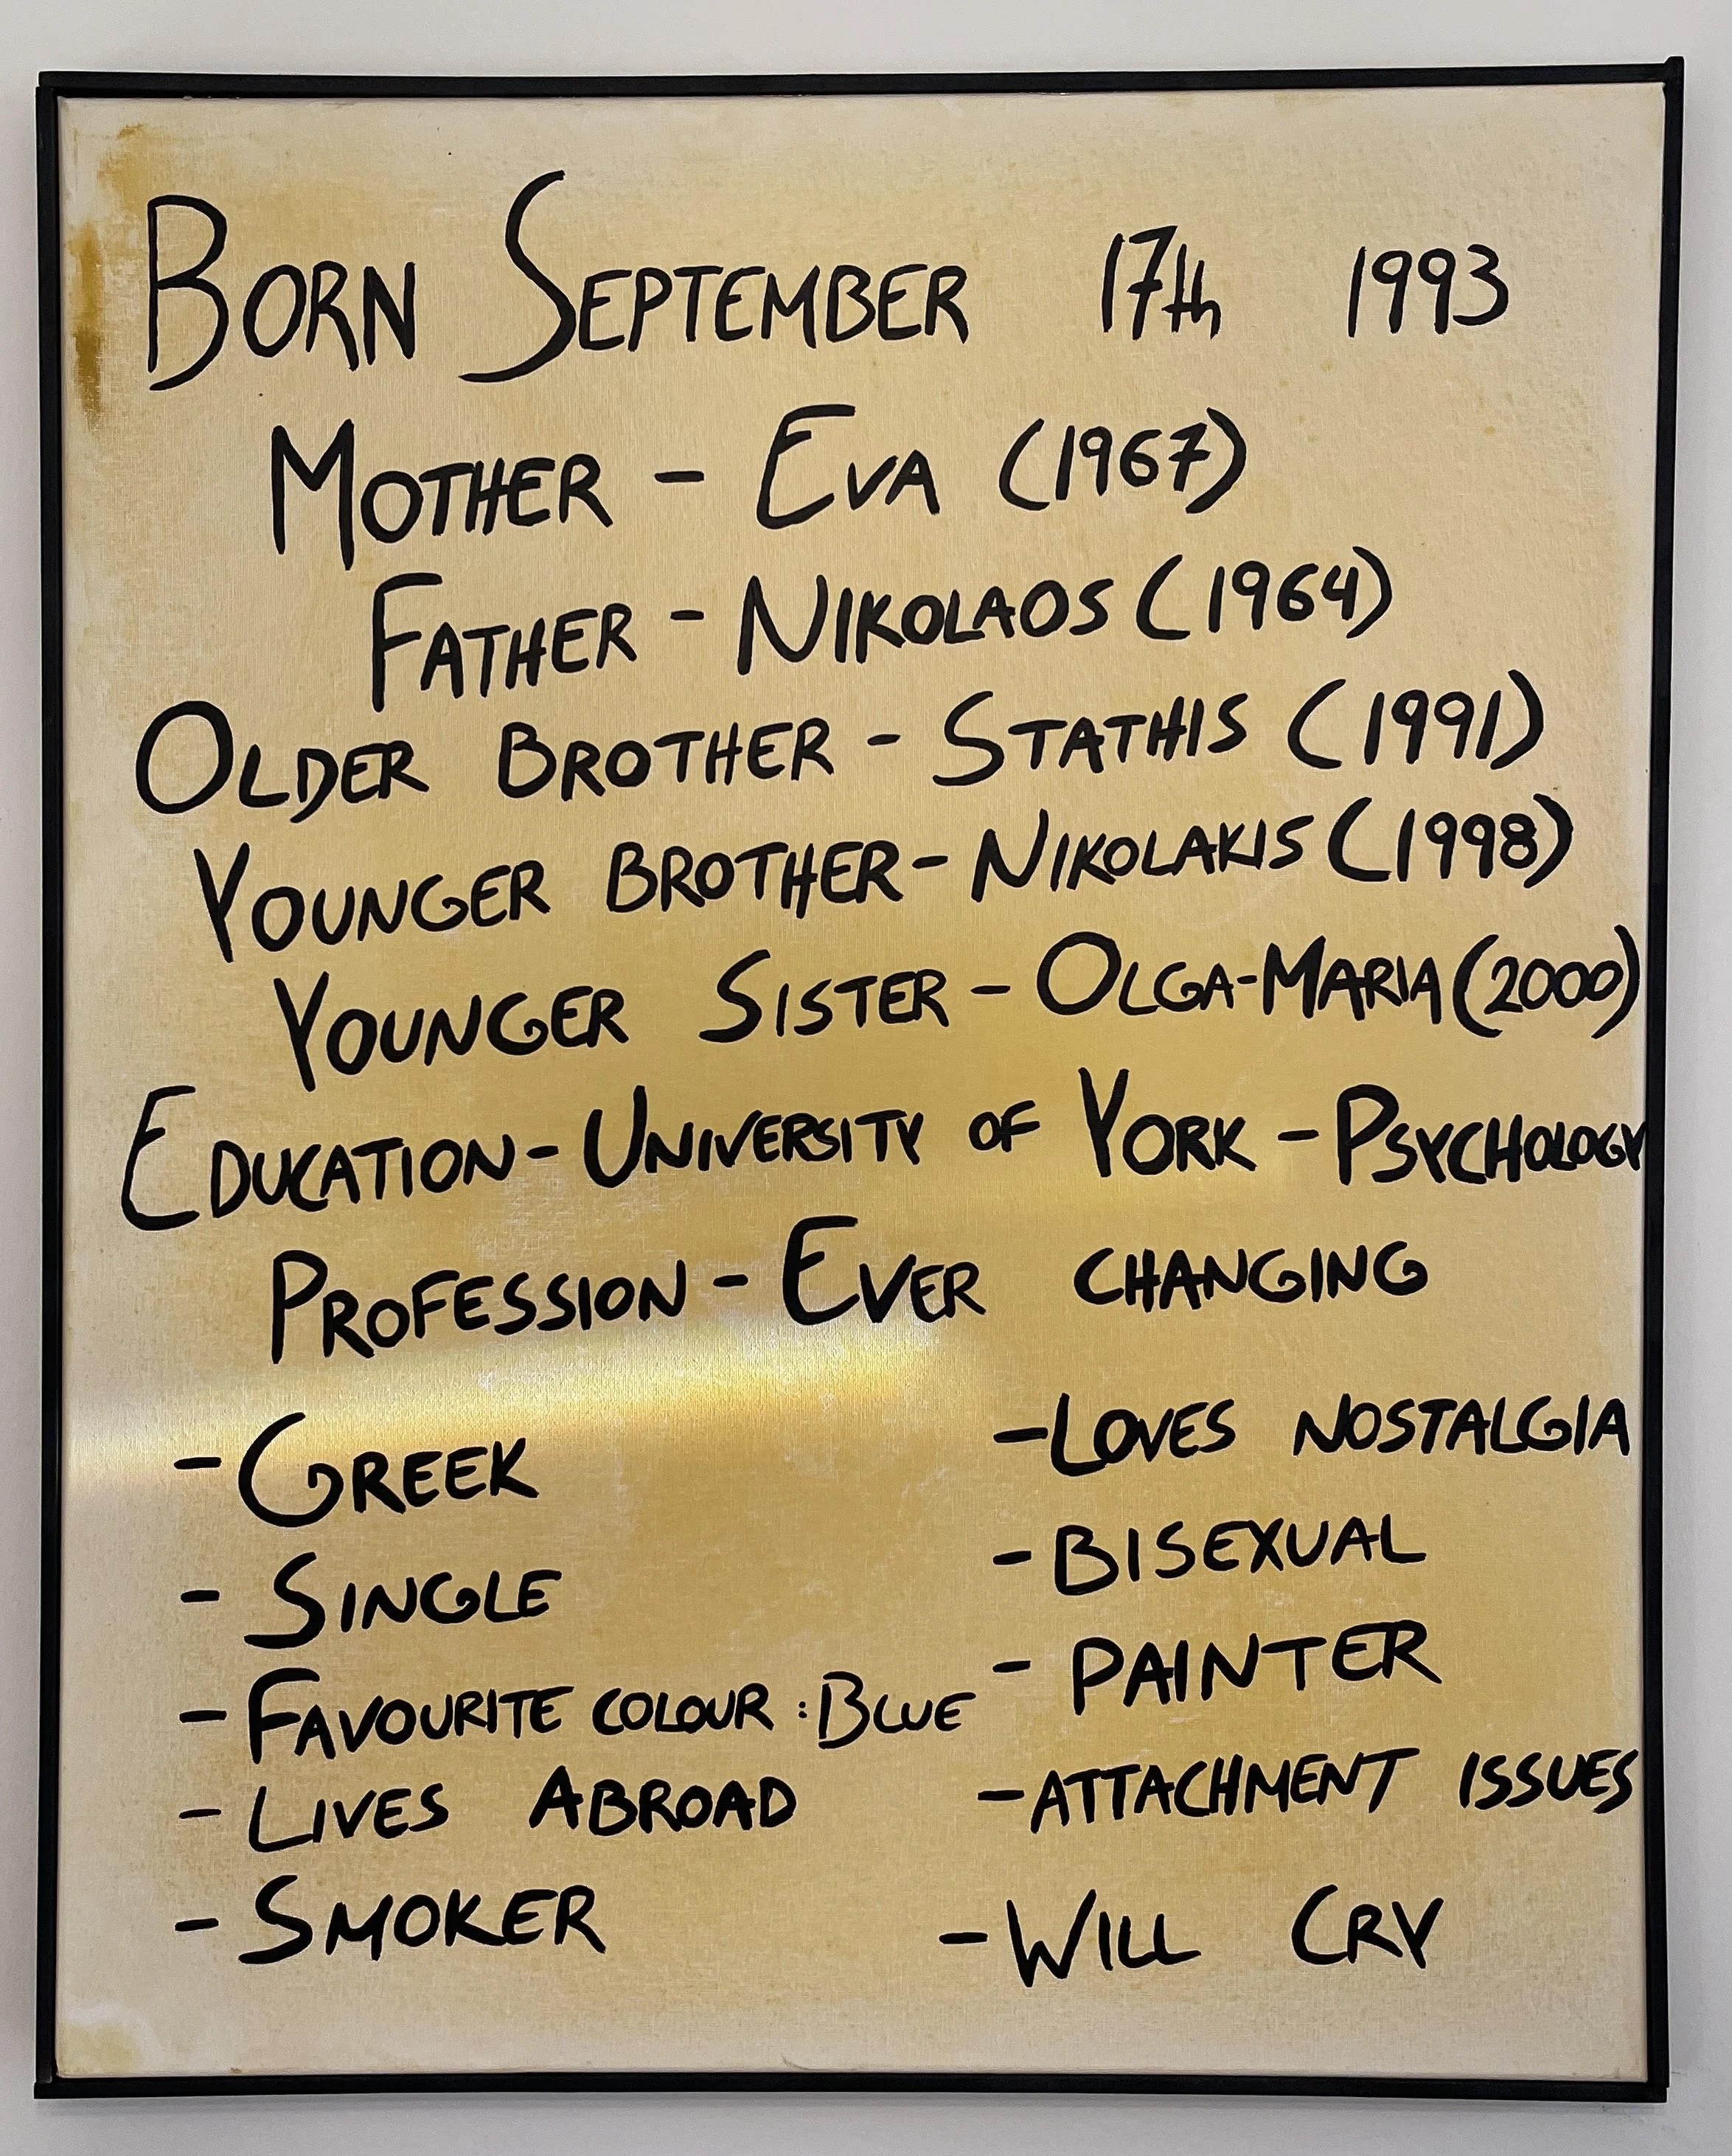 BORN SEPTEMBER 17th 1993
MOTHER - EVA (1967)
FATHER - NIKOLAOS (1964)
OLDER BROTHER - STATHIS (1991)
YOUNGER BROTHER - NIKOLAKIS (1998)
YOUNGER SISTER - OLGA-MARIA (2000)
EDUCATION - UNIVERSITY OF YORK - PSYCHOLOGY
PROFESSION - EVER CHANGING
- GREEK
- SINGLE
- FAVOURITE COLOUR : BLUE
- LIVES ABROAD
- SMOKER
- LOVES NOSTALGIA
- BISEXUAL
- PAINTER
- ATTACHMENT ISSUES
- WILL CRY